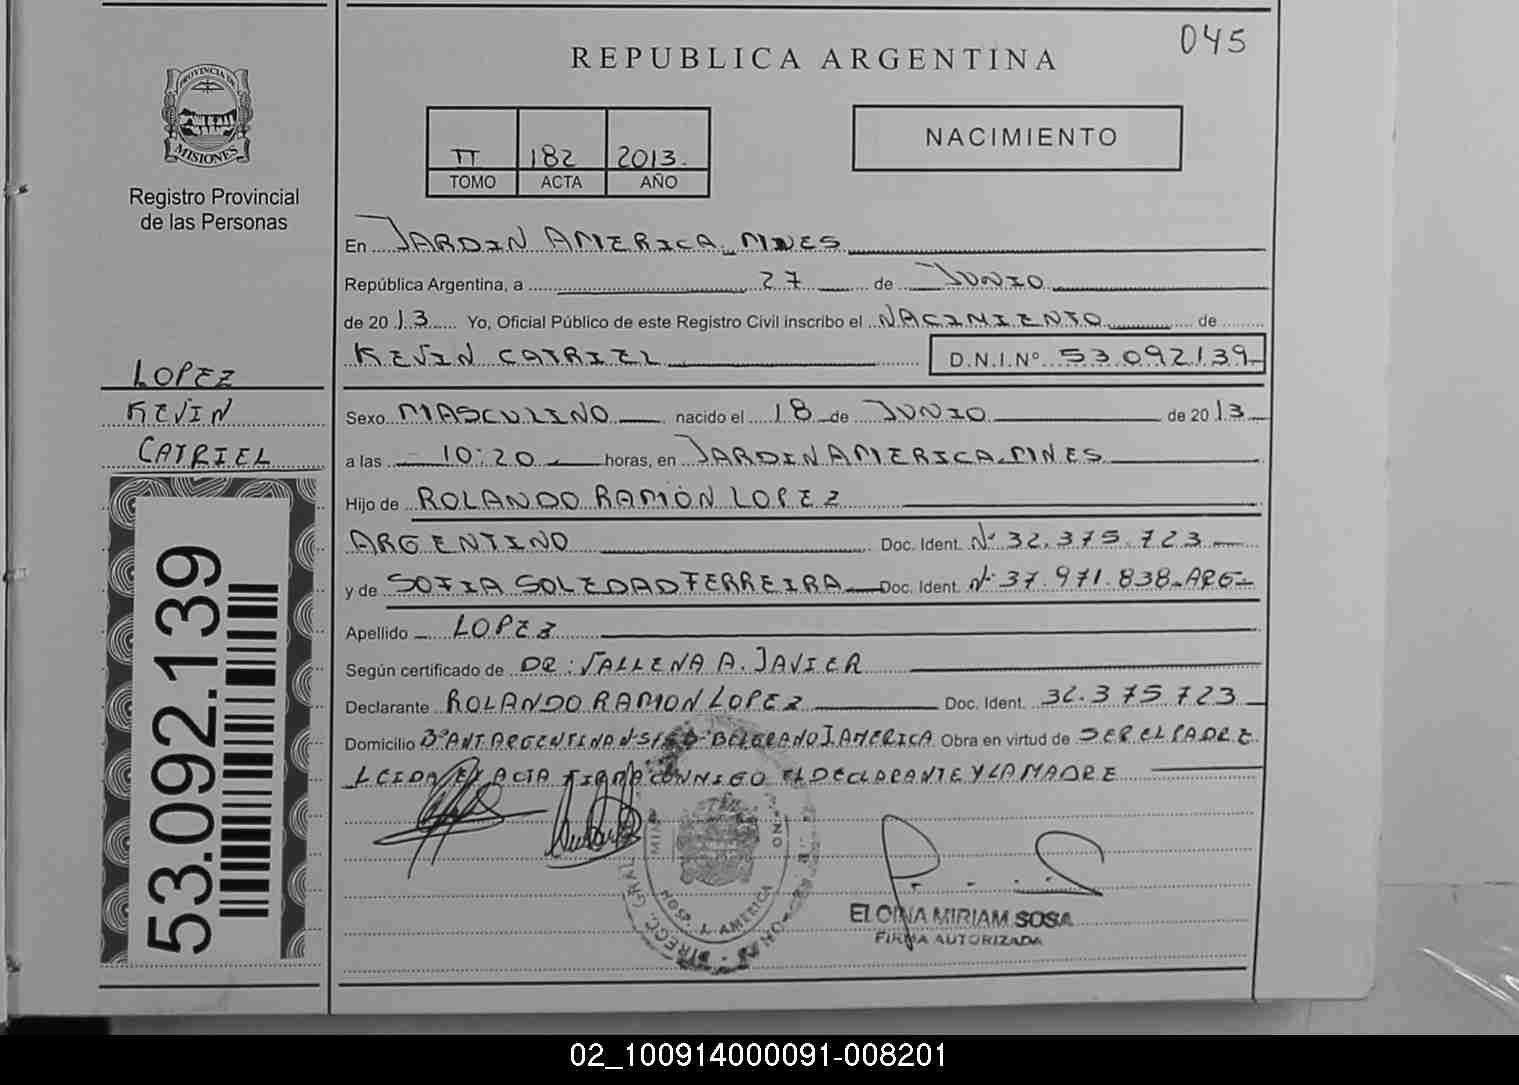 045
REPUBLICA ARGENTINA
PROVINCIA DE
MISIONES
Registro Provincial
de las Personas
NACIMIENTO
II 182 2013.
TOMO ACTA AÑO
En JARDIN AMERICA MNES
República Argentina, a 27 de JUNIO
de 2013 Yo, Oficial Público de este Registro Civil inscribo el NACIMIENTO de
KEVIN CATRIEL D.N.I.Nº 53.092.139
LOPEZ
KEVIN
CATRIEL
53.092.139
Sexo MASCULINO nacido el 18 de JUNIO de 2013
a las 10:20 horas, en JARDIN AMERICA MNES
Hijo de ROLANDO RAMÓN LOPEZ
ARGENTINO Doc. Ident. Nº 32.375.723
y de SOFIA SOLEDAD FERREIRA Doc. Ident. Nº 37.971.838-ARG-
Apellido LOPEZ
Según certificado de DR: VALLENA A. JAVIER
Declarante ROLANDO RAMON LOPEZ Doc. Ident. 32.375723
Domicilio Bº ANT ARGENTINA Nº S/Nº BELGRANO J AMERICA Obra en virtud de SER EL PADRE
LEIDA EL ACTA FIRMA CONMIGO EL DECLARANTE Y LA MADRE
HOSP. J. AMERICA
ELOINA MIRIAM SOSA
FIRMA AUTORIZADA
02_100914000091-008201